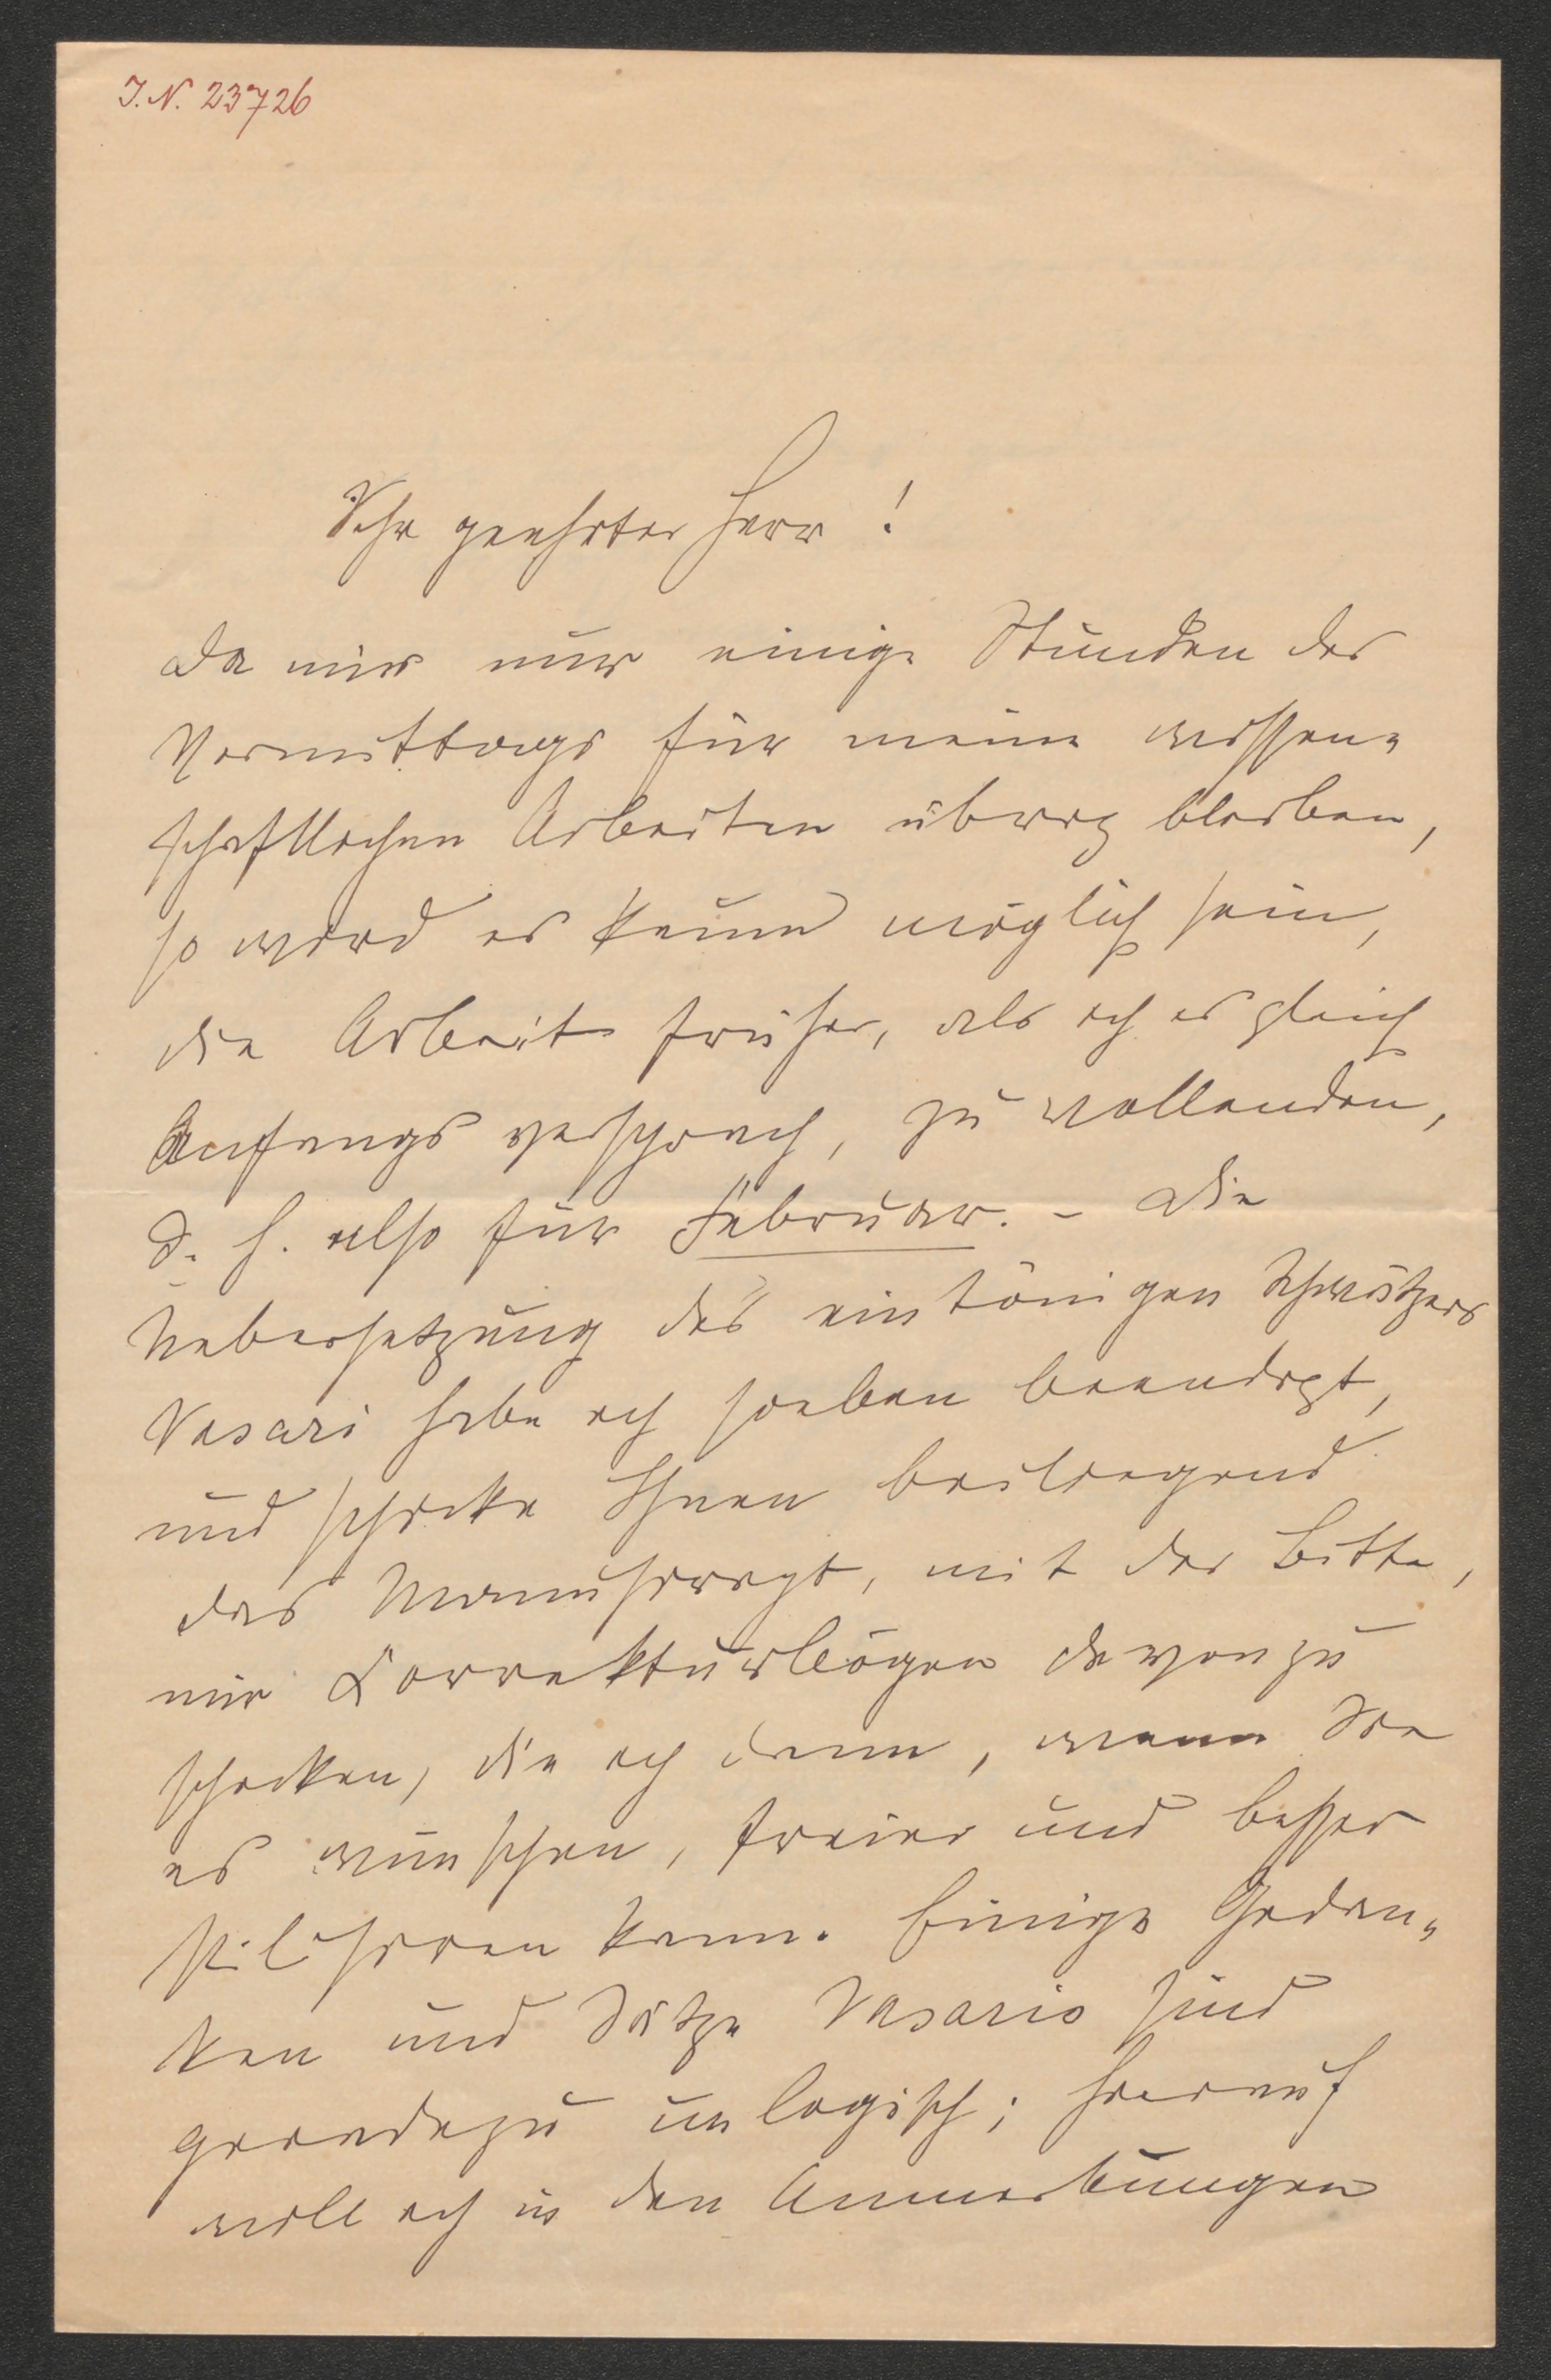 I.N. 23726
Sehr geehrter Herr!
Da mir nur einige Stunden des
Vormittags für meine wissen„
schaftlichen Arbeiten übrig bleiben,
so wird es kaum möglich sein,
die Arbeit früher, als ich es gleich
Anfangs versprach, zu vollenden,
d. h. also für Februar. – Die
Uebersetzung des eintönigen Schwätzers
Vasari habe ich soeben beendigt,
und schicke Ihnen beiliegend
das Manuskript, mit der Bitte,
mir Korrekturbögen davon zu
schicken, die ich dann, wenn Sie
es wünschen, freier und besser
stilisiren kann. Einige Gedan„
ken und Sätze Vasaris sind
geradezu unlogisch; hierauf
will ich in den Anmerkungen